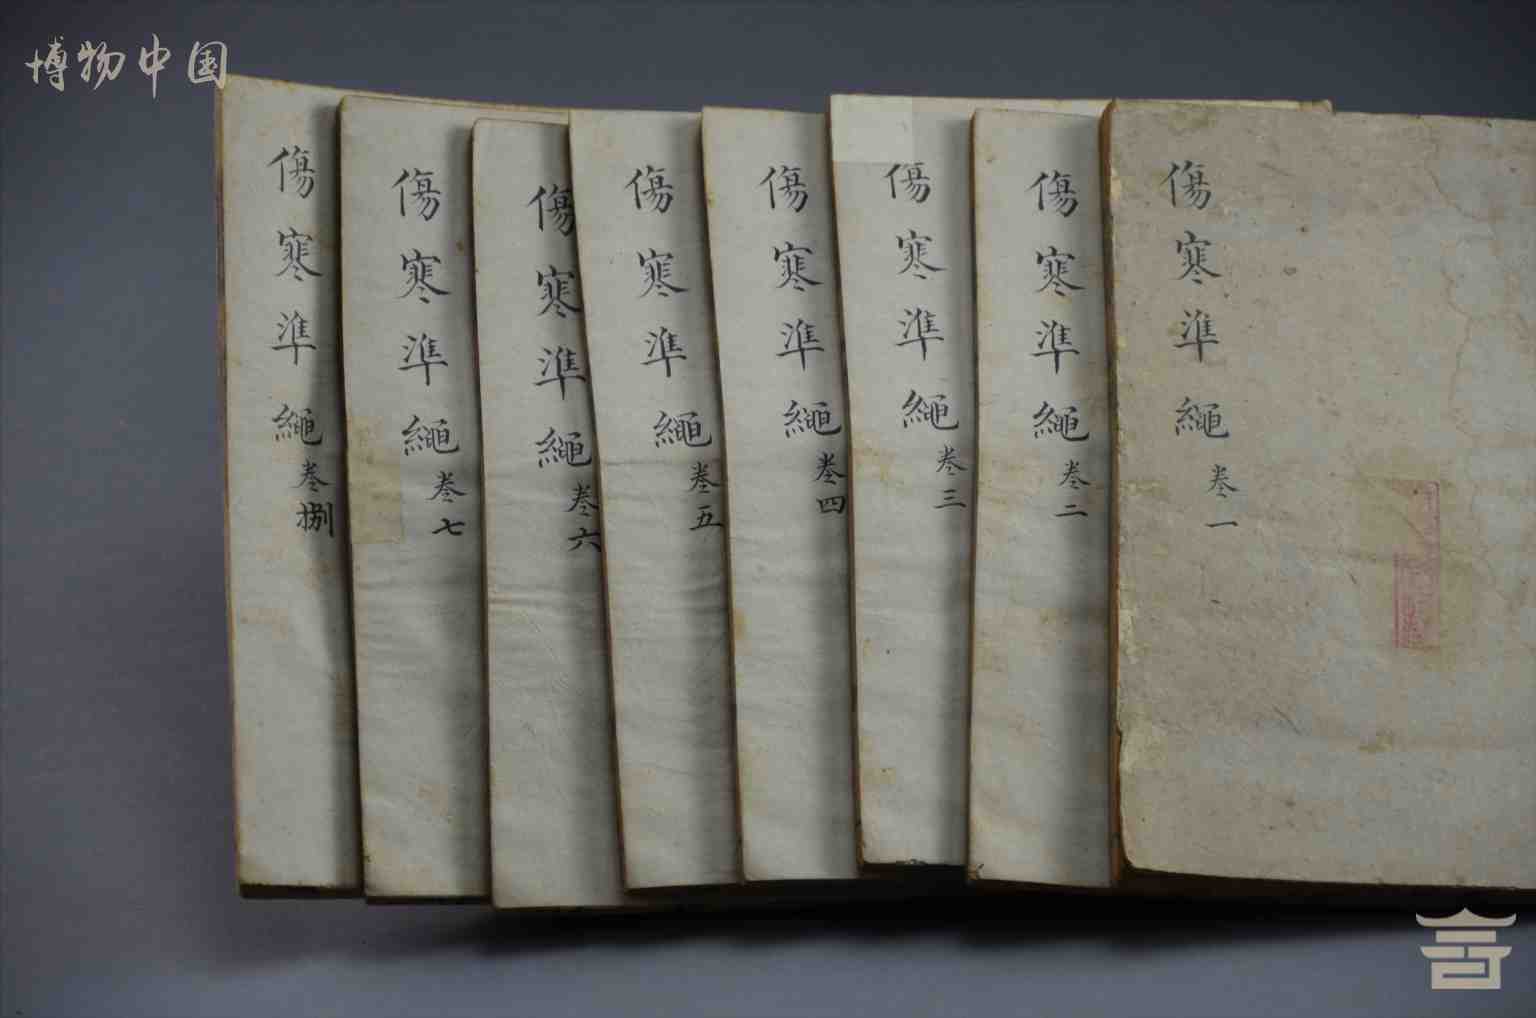 博物中国
傷寒準繩卷一
傷寒準繩卷二
傷寒準繩卷三
傷寒準繩卷四
傷寒準繩卷五
傷寒準繩卷六
傷寒準繩卷七
傷寒準繩卷捌